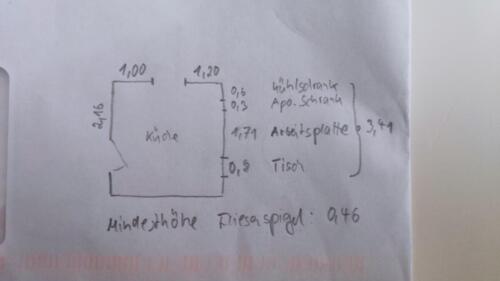 1,00 1,20
0,6 Kühlschrank
0,3 Apo. Schrank
2,16
Küche
1,71 Arbeitsplatte
3,41
0,8 Tisch
Mindesthöhe Fliesenspiegel: 0,46